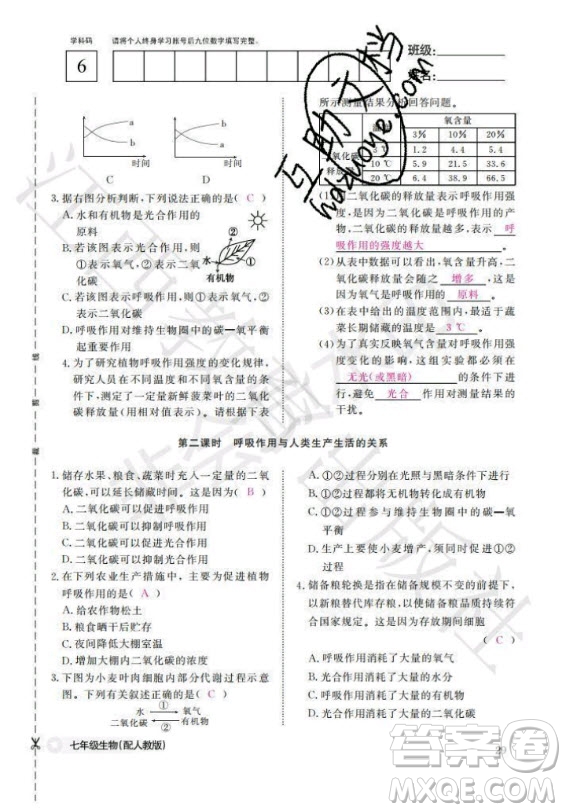 学科码 请将个人终身学习账号后九位数字填写完整。
6
班级:
姓名:
a
b
时间
C
a
b
时间
D
3. 据右图分析判断,下列说法正确的是( C )
A. 水和有机物是光合作用的
原料
B. 若该图表示光合作用,则
①表示二氧气,②表示二
氧化碳
C. 若该图表示呼吸作用,则
①表示氧气,②表示二氧化碳
D. 呼吸作用对维持生物圈中的碳—氧平衡
起重要作用
水
①
②
有机物
4. 为了研究植物呼吸作用强度的变化规律,
研究人员在不同温度和不同含氧量的条件
下,测定了一定大小的新鲜菠菜叶的二氧化
碳释放量(用相对值表示)。请根据下表
所示测量结果分析回答问题。
氧含量
3% 10% 20%
二氧化碳
释放量
3 ℃ 1.2 4.4 5.4
10 ℃ 5.9 21.5 33.6
20 ℃ 6.4 38.9 66.5
(1) 二氧化碳的释放量表示呼吸作用强
度,是因为二氧化碳是呼吸作用的产
物,二氧化碳的释放量越多,表示 呼
吸作用的强度越大 。
(2) 从表中数据可以看出,氧含量升高,二
氧化碳释放量会随之 增多 ,这是
因为氧气是呼吸作用的 原料 。
(3) 在表中给出的温度范围内,最适于蔬
菜长期储藏的温度是 3 ℃ 。
(4) 为了真实反映氧气含量对呼吸作用强
度变化的影响,这一组实验必须在
无光(或黑暗) 的条件下进行,
避免 光合 作用对测量结果的
干扰。
第二课时 呼吸作用与人类生产生活的关系
1. 储存水果、粮食、蔬菜时充入一定量的二氧
化碳,可以延长储藏时间。这是因为( B )
A. 二氧化碳可以促进呼吸作用
B. 二氧化碳可以抑制呼吸作用
C. 二氧化碳可以促进光合作用
D. 二氧化碳可以抑制光合作用
2. 在下列农业生产措施中,主要为了促进植物
呼吸作用的是( A )
A. 给农作物松土
B. 粮食晒干后贮存
C. 夜间适当降低大棚温度
D. 移栽植物时剪去大量枝叶
3. 下图为小麦叶肉细胞内部分代谢过程示意
图。下列有关叙述正确的是( C )
水
①
氧气
二氧化碳
②
有机物
A. ①②过程分别在光照与黑暗条件下进行
B. ①②过程都将无机物转化成有机物
C. ①②过程参与维持生物圈中的碳—氧
平衡
D. ①②过程都能使小麦增产,所以①②过程
越旺盛越好
4. 储备粮轮换是指在储备规模不变的前提下,
以新粮替代库存粮,使储备粮的质量等符合
国家规定。这主要是因为存放期间细胞
( C )
A. 呼吸作用消耗了大量的氧气
B. 光合作用消耗了大量的水分
C. 呼吸作用消耗了大量的有机物
D. 光合作用消耗了大量的二氧化碳
七年级生物(配人教版)
互助文档
hdzuoye.com
答案圈
MXQE.COM